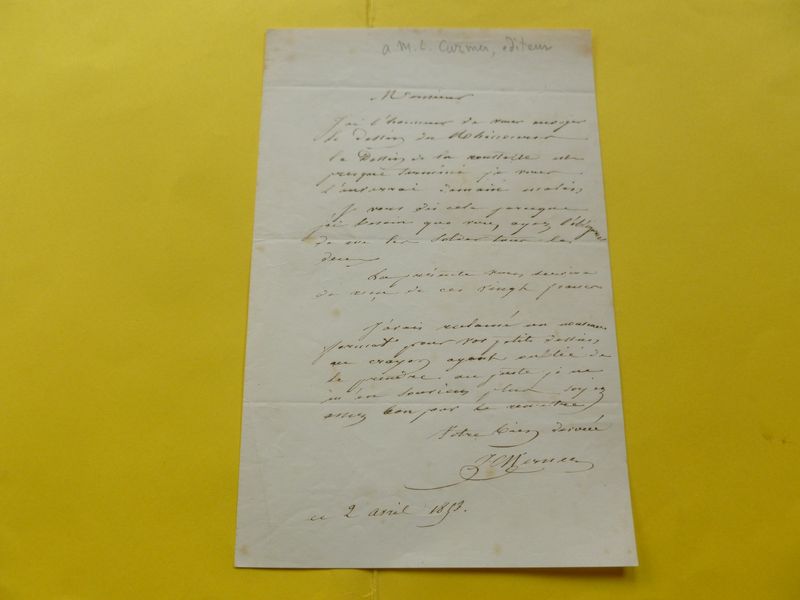 a M. L. Curmer, éditeur
Monsieur
J'ai l'honneur de vous envoyer
le dessin du
le Dessin de la est
presque terminé je vous
l'enverrai demain matin,
Je vous dis cela parceque
j'ai besoin que vous ayez l'obligeance
de me les solder tous les
deux
La présente vous servira
de reçu de ces vingt francs
J'avais reclamé un
format pour vos petits dessins
au crayon ayant oublié de
le prendre au juste je ne
m'en souviens plus soyez
assez bon pour le remettre
Votre bien dévoué
ce 2 avril 1853.